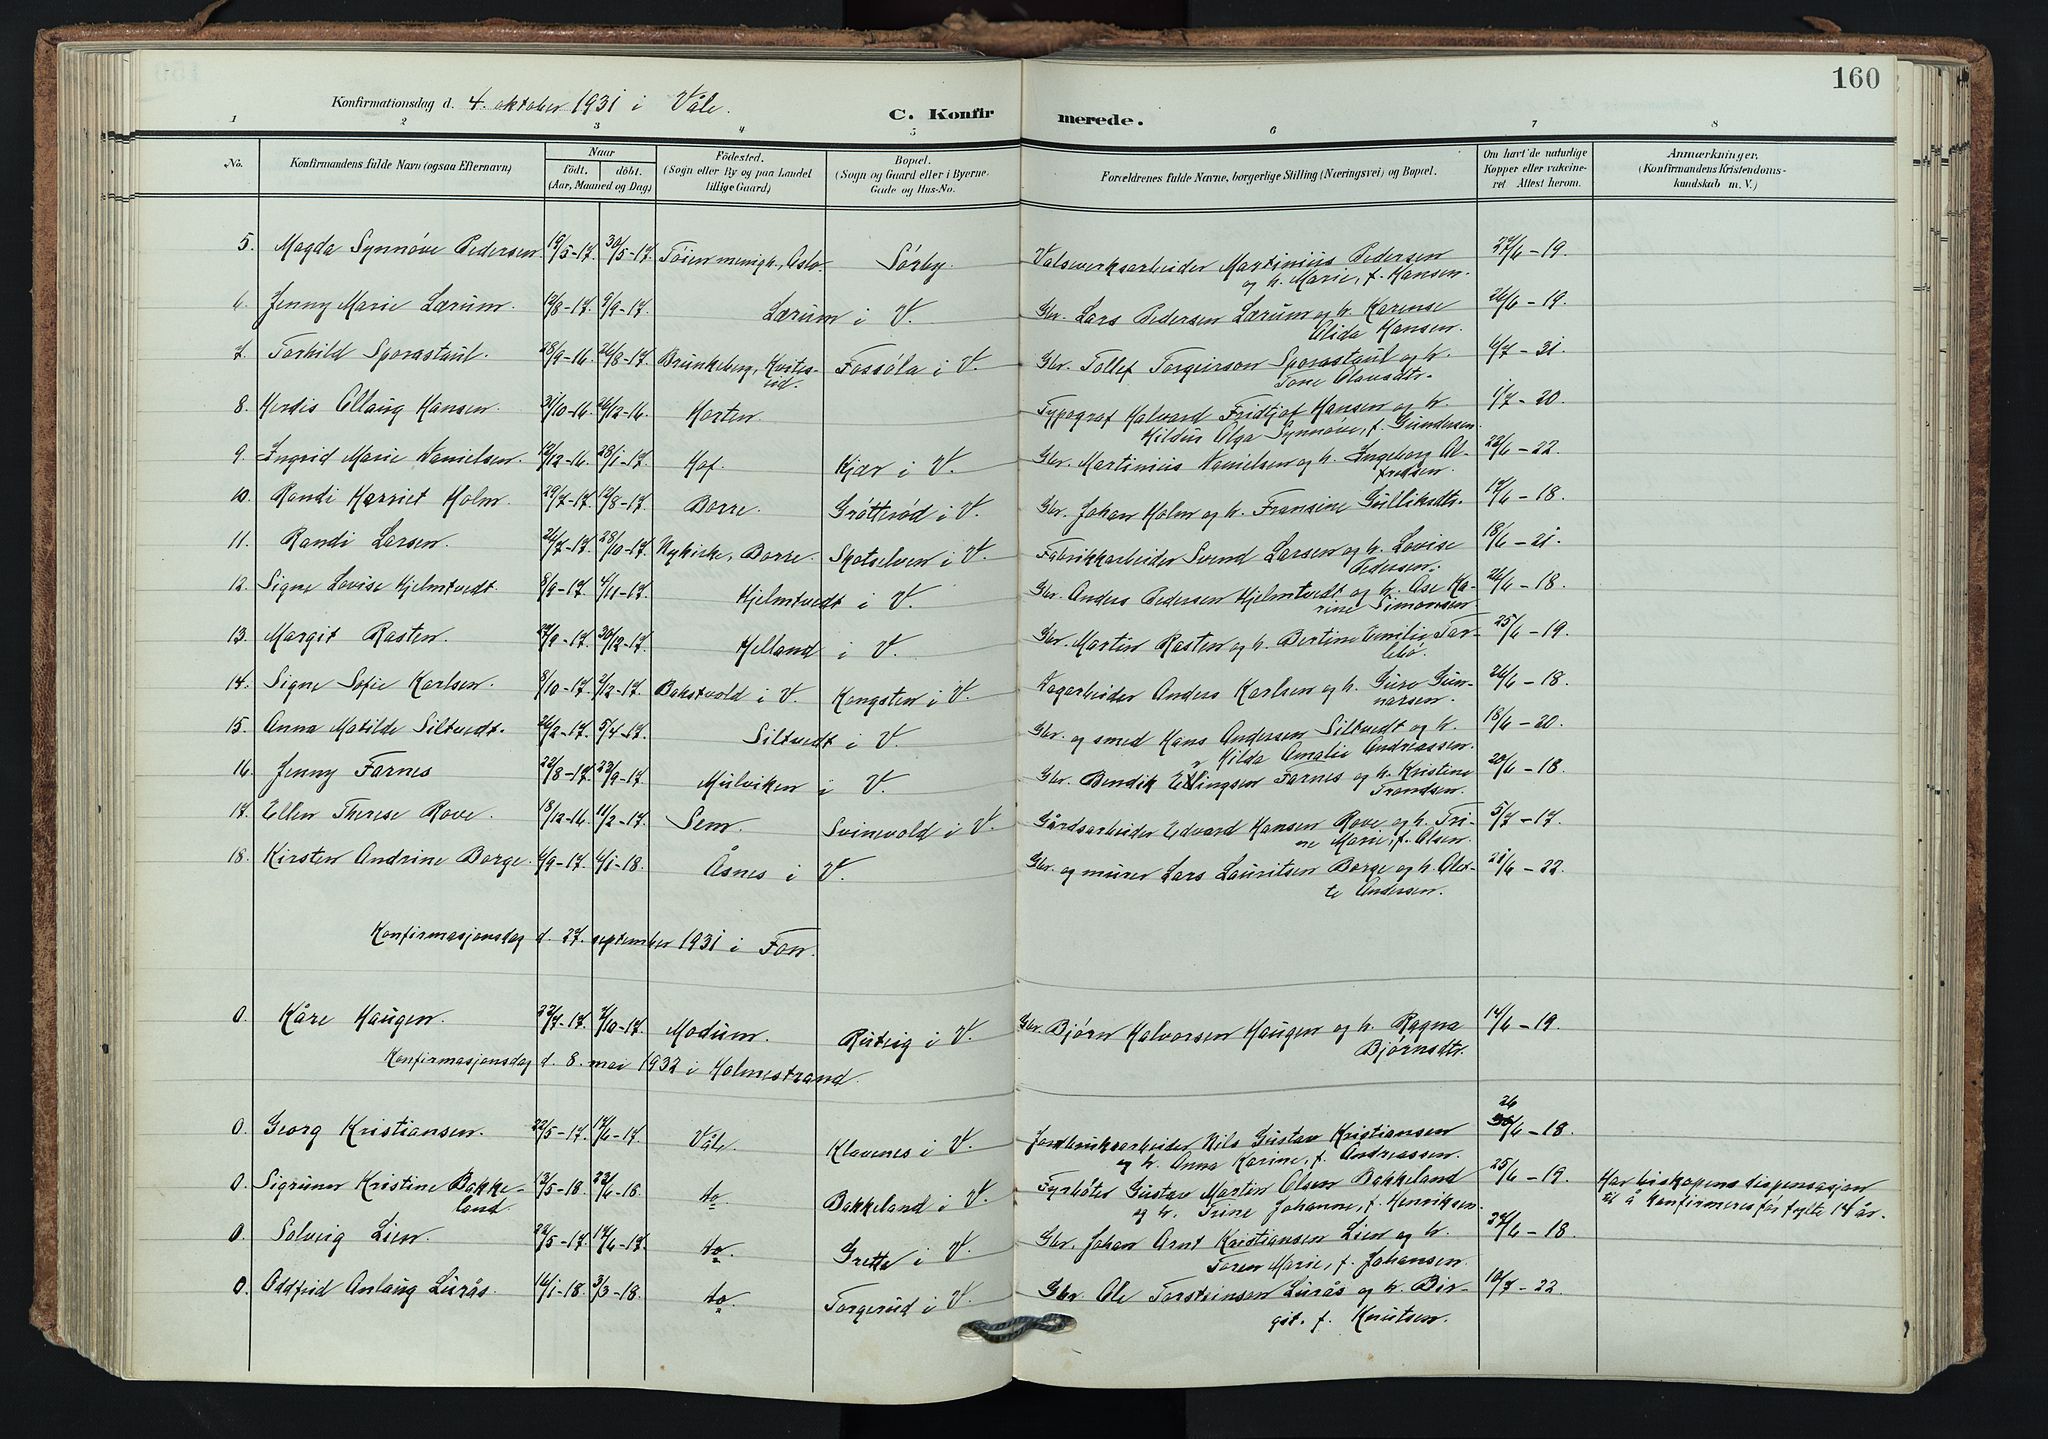 160
Konfirmationsdag d. 4. oktober 1931 i Våle.
C. Konfirmerede.
1 2 3 4 5 6 7 8
No. Konfirmandens fulde Navn (ogsaa Efternavn) Naar født. døbt. (Aar, Maaned og Dag) Fødested. (Sogn eller By og paa Landet tillige Gaard) Bopæl. (Sogn og Gaard eller i Byerne Gade og Hus-No. Forældrenes fulde Navne, borgerlige Stilling (Næringsvei) og Bopæl. Om havt de naturlige Kopper eller vakcineret Attest herom. Anmærkninger. (Konfirmandens Kristendomskundskab m. V.)
5. Magda Synnøve Pedersen 19/5-17. 30/5-17. Tøien menigh., Oslo Sørby. Valsverksarbeider Martinius Pedersen 27/6-19.
og h. Marie, f. Hansen.
6. Jenny Marie Lærum. 12/8-17. 9/9-17. Lærum i V. Gbr. Lars Pedersen Lærum og h. Karense 26/6-19.
Elida Hansen.
7. Torhild Sporastaul. 28/9-16. 26/8-17. Brunkeberg, Kvites- Fossøla i V. Gbr. Tollef Torgeirson Sporastaul og h. 4/7-31.
eid. Tone Olavsdtr.
8. Herdis Ollaug Hansen. 31/10-16. 26/12-16. Horten Typograf Halvard Fridtjof Hansen og h. 1/7-20.
Hildur Olga Synnøve, f. Gundersen.
9. Ingrid Marie Danielsen. 12/12-16. 28/1-17. Hof. Kjær i V. Gbr. Martinius Danielsen og h. Ingeborg Al- 23/6-22.
fredsen.
10. Randi Harriet Holm. 29/7-17. 12/8-17. Borre. Grøtterød i V. Gbr. Johan Holm og h. Fransine Gulliksdtr. 17/6-18.
11. Randi Larsen. 24/7-17. 28/10-17. Nykirke, Borre. Skotselven i V. Fabrikkarbeider Svend Larsen og h. Lovise 18/6-21.
Pedersen.
12. Signe Lovise Hjelmtvedt. 8/9-17. 4/11-17. Hjelmtvedt i V. Gbr. Anders Pedersen Hjelmtvedt og h. Åse Ka- 26/6-18.
rine Simonsen.
13. Margit Rasten. 27/9-17. 30/12-17. Helland i V. Gbr. Martin Rasten og h. Bertine Emilie Tor- 25/6-19.
lebø.
14. Signe Sofie Karlsen. 8/10-17. 2/12-17. Bakstvold i V. Kongsten i V. Dagarbeider Anders Karlsen og h. Guro Gun- 26/6-18.
narsen.
15. Anna Matilde Siltvedt. 26/2-17. 5/4-17. Siltvedt i V. Gbr. og smed Hans Andersen Siltvedt og h. 18/6-20.
Hilda Amalie Andreassen.
16. Jenny Farnes 22/8-17. 23/9-17. Mulviken i V. Gbr. Bendik Ellingsen Farnes og h. Kristine 20/6-18.
Trondsen.
17. Ellen Therese Rove. 18/12-16. 11/2-17. Sem. Svinevold i V. Gårdsarbeider Edvard Hansen Rove og h. Tri- 5/7-17.
ne Marie, f. Olsen.
18. Kirsten Andrine Borge. 4/9-17. 6/1-18. Åsnes i V. Gbr. og murer Lars Lauritsen Borge og h. Alet- 21/6-22.
te Andersen.
Konfirmasjonsdag d. 27. september 1931 i Fon.
0. Kåre Haugen. 22/7-17. 7/10-17. Modum. Rustig i V. Gbr. Bjørn Halvorsen Haugen og h. Ragna 14/6-19.
Bjørnsdtr.
Konfirmasjonsdag d. 8. mai 1932 i Holmestrand.
26
0. Georg Kristiansen. 22/5-17. 17/6-17. Våle. Klavenes i V. Jernbruksarbeider Nils Gustav Kristiansen 30/6-18.
og h. Anna Karine, f. Andreassen.
0. Sigrunn Kristine Bakke- 13/5-18. 23/6-18. do Bakkeland i V. Fyrbøter Gustav Martin Olsen Bakkeland 25/6-19. Har biskopens dispensasjon
land. og h. Trine Johanne, f. Henriksen. til å konfirmeres før fylte 14 år.
0. Solveig Lien. 23/5-17. 17/6-17. do. Grette i V. Gbr. Johan Arnt Kristiansen Lien og h. 27/6-18.
Toren Marie, f. Johansen.
0. Oddfrid Anlaug Lurås. 16/1-18. 3/3-18. do. Torgerud i V. Gbr. Ole Torsteinsen Lurås og h. Bir- 10/7-22.
git. f. Knutsen.